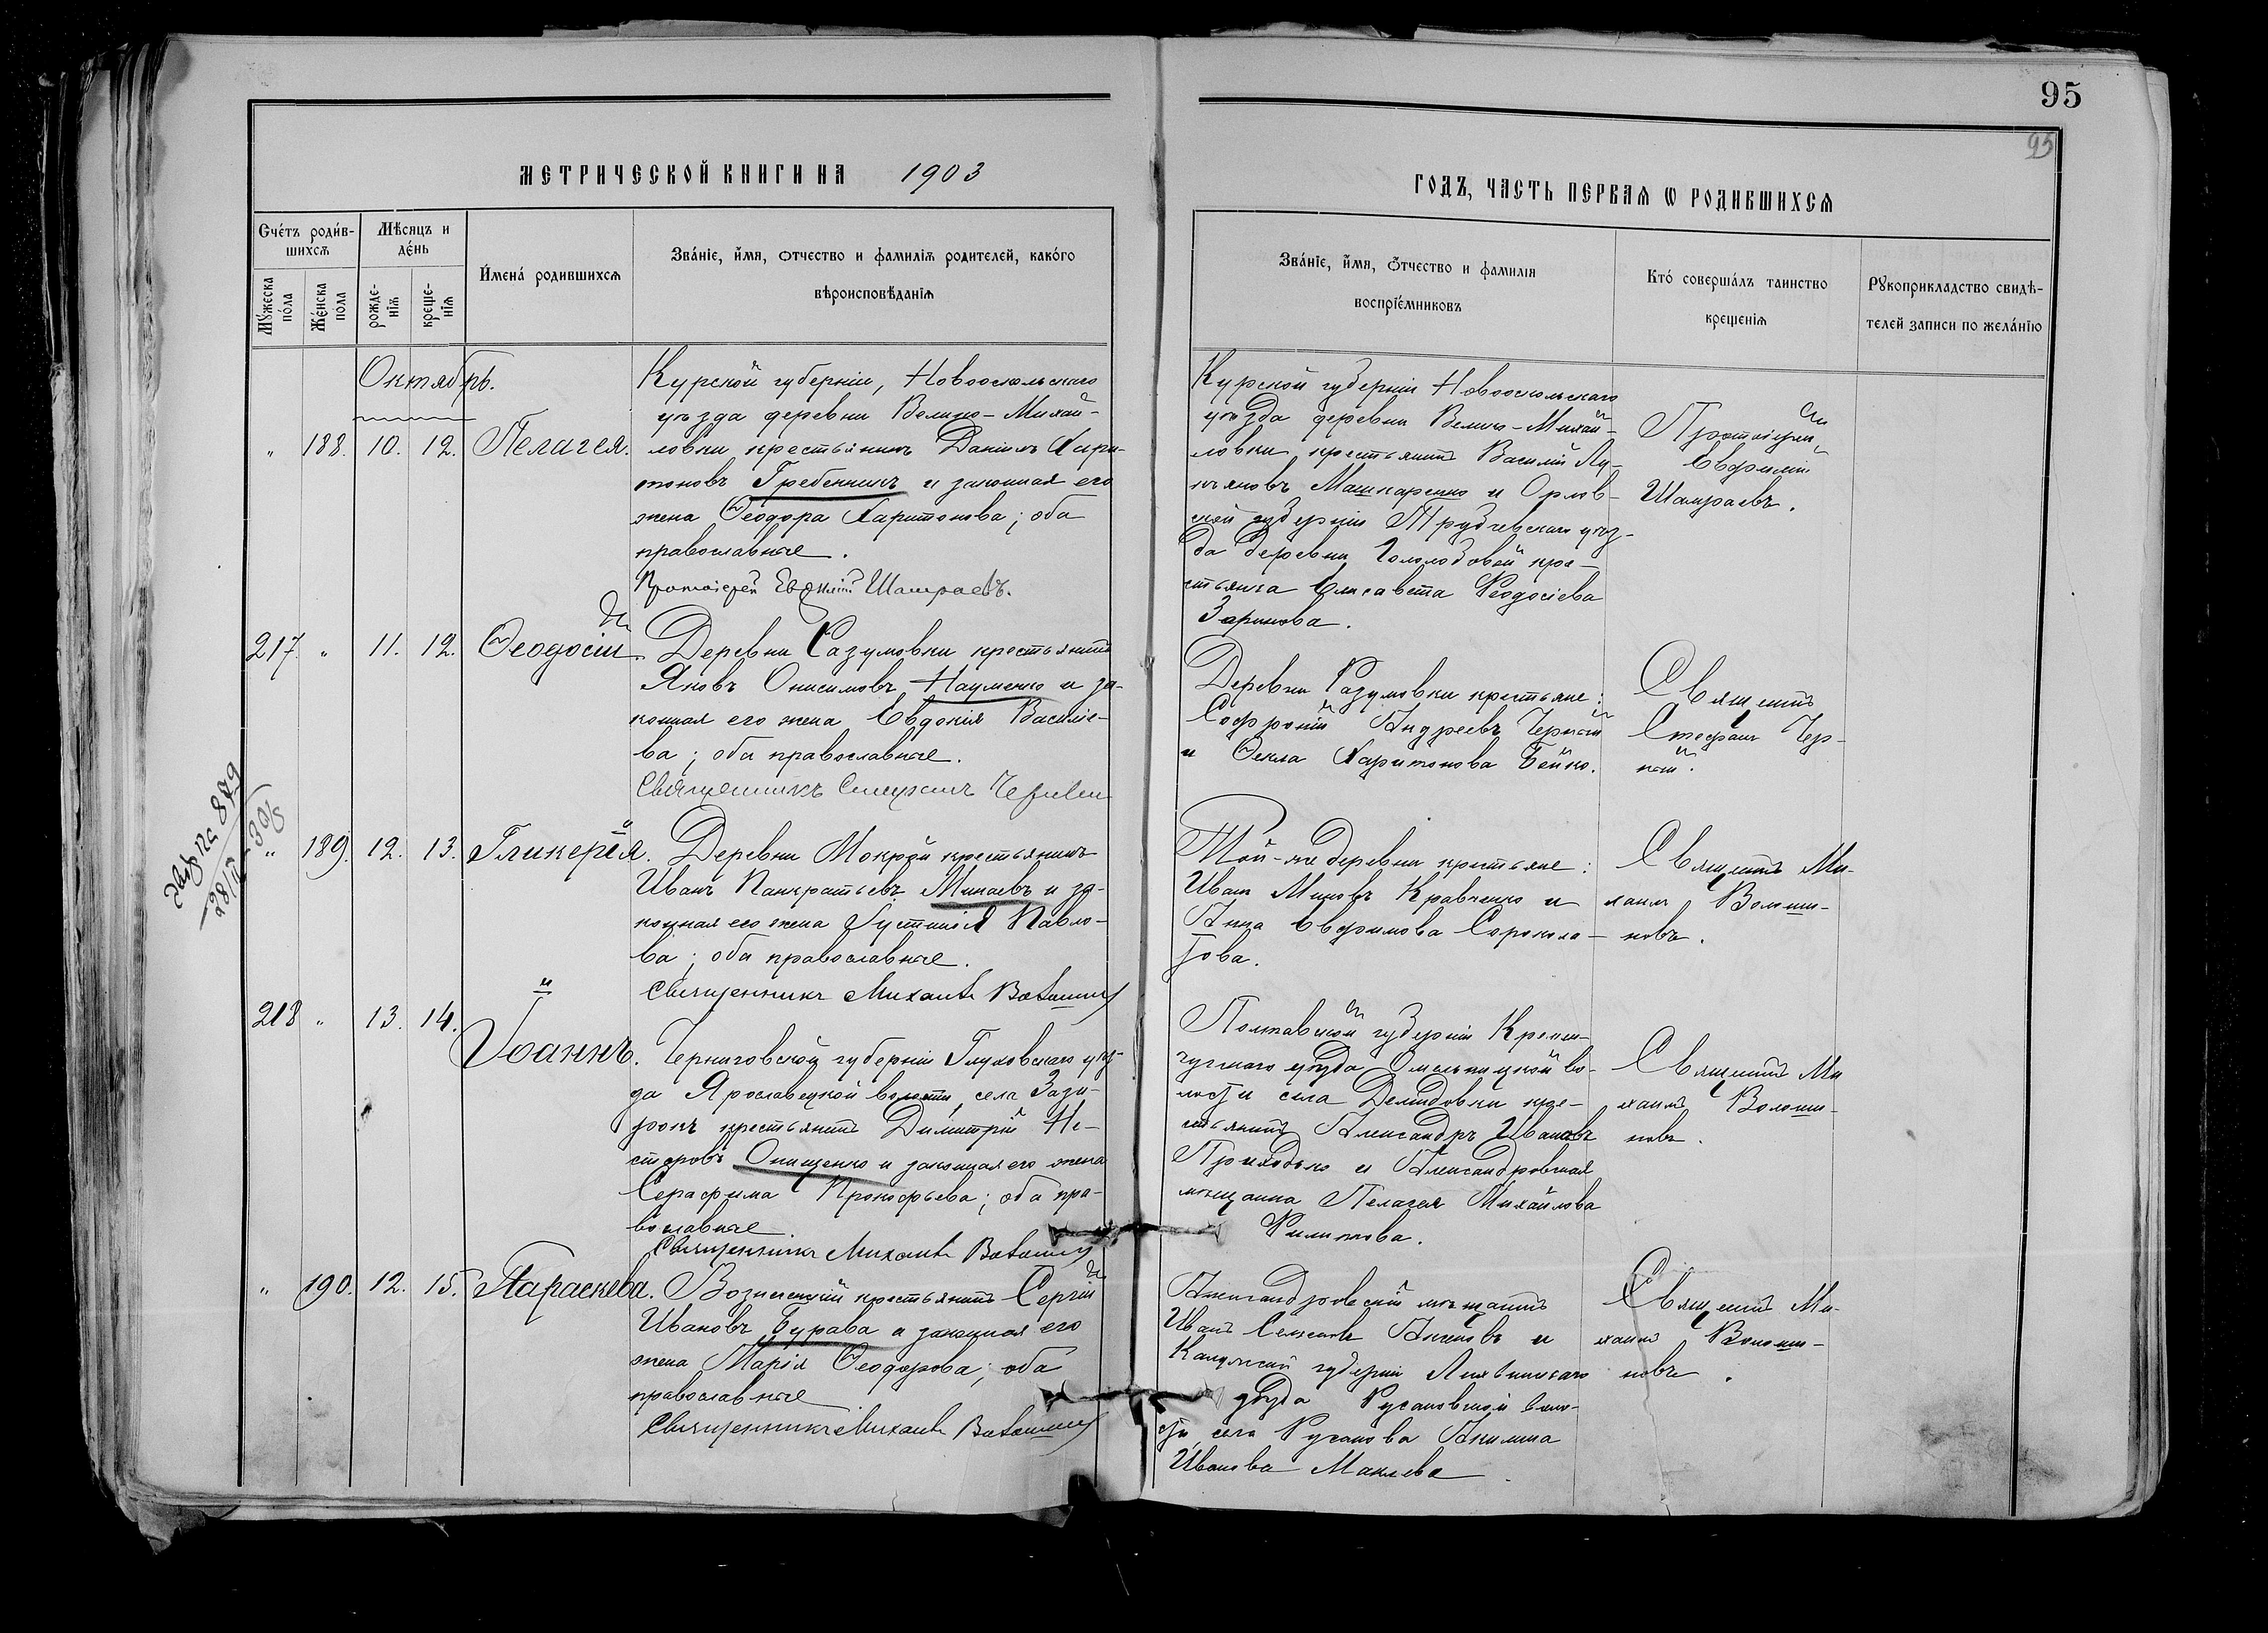 95
95
МЕТРИЧЕСКОЙ КНИГИ НА 1903
ГОДЪ, ЧАСТЬ ПЕРВАЯ Ѡ РОДИВШИХСѦ
Счётъ родив-
шихсѧ
Мѣсяцъ и
де́нь
Мꙋжеска
пола
Женска
пола
рожде-
нїѧ
креще-
нїѧ
Имена́ родившихсѧ
Зва́нїе, и́мя, ѻтчество и фамилїѧ родителей, како́го
вѣроисповѣданїѧ
Зва́нїе, и́мя, ѻтчество и фамилїя
воспрїе́мниковъ
Кто́ соверша́лъ таинство
крещенїѧ
Рꙋкоприкладство свидѣ-
телей записи по жела́нїю
Октябрь.
" 188. 10. 12. Пелагея.
Курской губерніи, Новооскольскаго
уѣзда деревни Велико-Михай-
ловки крестьянинъ Даніилъ Хари-
тоновъ Гребенникъ и законная его
жена Ѳеодора Харитонова; оба
православные.
Протоіерей Евфимій Шамраевъ.
Курской губерніи Новооскольскаго
уѣзда деревни Велико-Михай-
ловки крестьянинъ Василій Лу-
кьяновъ Машкаренко и Орлов-
ской губерніи Трубчевскаго уѣз-
да деревни Гололобовой кре-
стьянка Елисавета Ѳеодосіева
Зарикова.
Протоіерей
Евфимій
Шамраевъ.
217. " 11. 12. Ѳеодосій.
Деревни Разумовки крестьянинъ
Яковъ Онисимовъ Науменко и за-
конная его жена Евдокія Василіе-
ва; оба православные.
Священникъ Стефанъ Черный
Деревни Разумовки крестьяне:
Софроній Андреевъ Черный
и Ѳекла Харитонова Бойко.
Священникъ
Стефанъ Чер-
ный.
" 189. 12. 13. Гликерія.
Деревни Мокрой крестьянинъ
Иванъ Панкратьевъ Минаевъ и за-
конная его жена Іустинія Павло-
ва; оба православные.
Священникъ Михаилъ Волошиновъ
Той-же деревни крестьяне:
Иванъ Миновъ Кравченко и
Анна Евфимова Сорокола-
това.
Священникъ Ми-
хаилъ Волоши-
новъ.
218 " 13. 14. Іоаннъ.
Черниговской губерніи Глуховскаго уѣз-
да Ярославецкой волости, села Зази-
рокъ крестьянинъ Димитрій Не-
стеровъ Онищенко и законная его жена
Серафима Прокофьева; оба пра-
вославные.
Священникъ Михаилъ Волошиновъ
Полтавской губерніи Кремен-
чугскаго уѣзда Омельницкой во-
лости села Демидовки кре-
стьянинъ Александръ Ивановъ
Приходько и Александровская
мѣщанка Пелагея Михайлова
Филиппова.
Священникъ Ми
хаилъ Волоши-
новъ.
" 190. 12. 15. Параскева.
Вознесенскій крестьянинъ Сергій
Ивановъ Бурава и законная его
жена Марія Ѳеодорова; оба
православные.
Священникъ Михаилъ Волошиновъ
Александровскій мѣщанинъ
Иванъ и
Калужской губерніи Лихвинскаго
уѣзда Русановской воло-
сти, села Русанова Акилина
Иванова
Священникъ Ми-
хаилъ Волоши-
новъ.